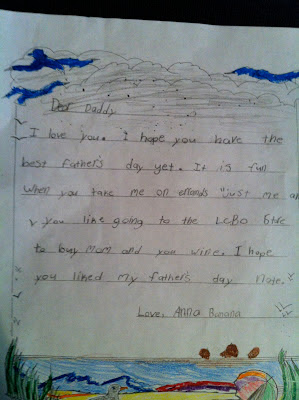 Dear Daddy
I love you. I hope you have the
best father's day yet. It is fun
when you take me on errands "just me a
you like going to the LCBO
to buy mom and you wine. I hope
you liked my father's day note.
Love, Anna Banana